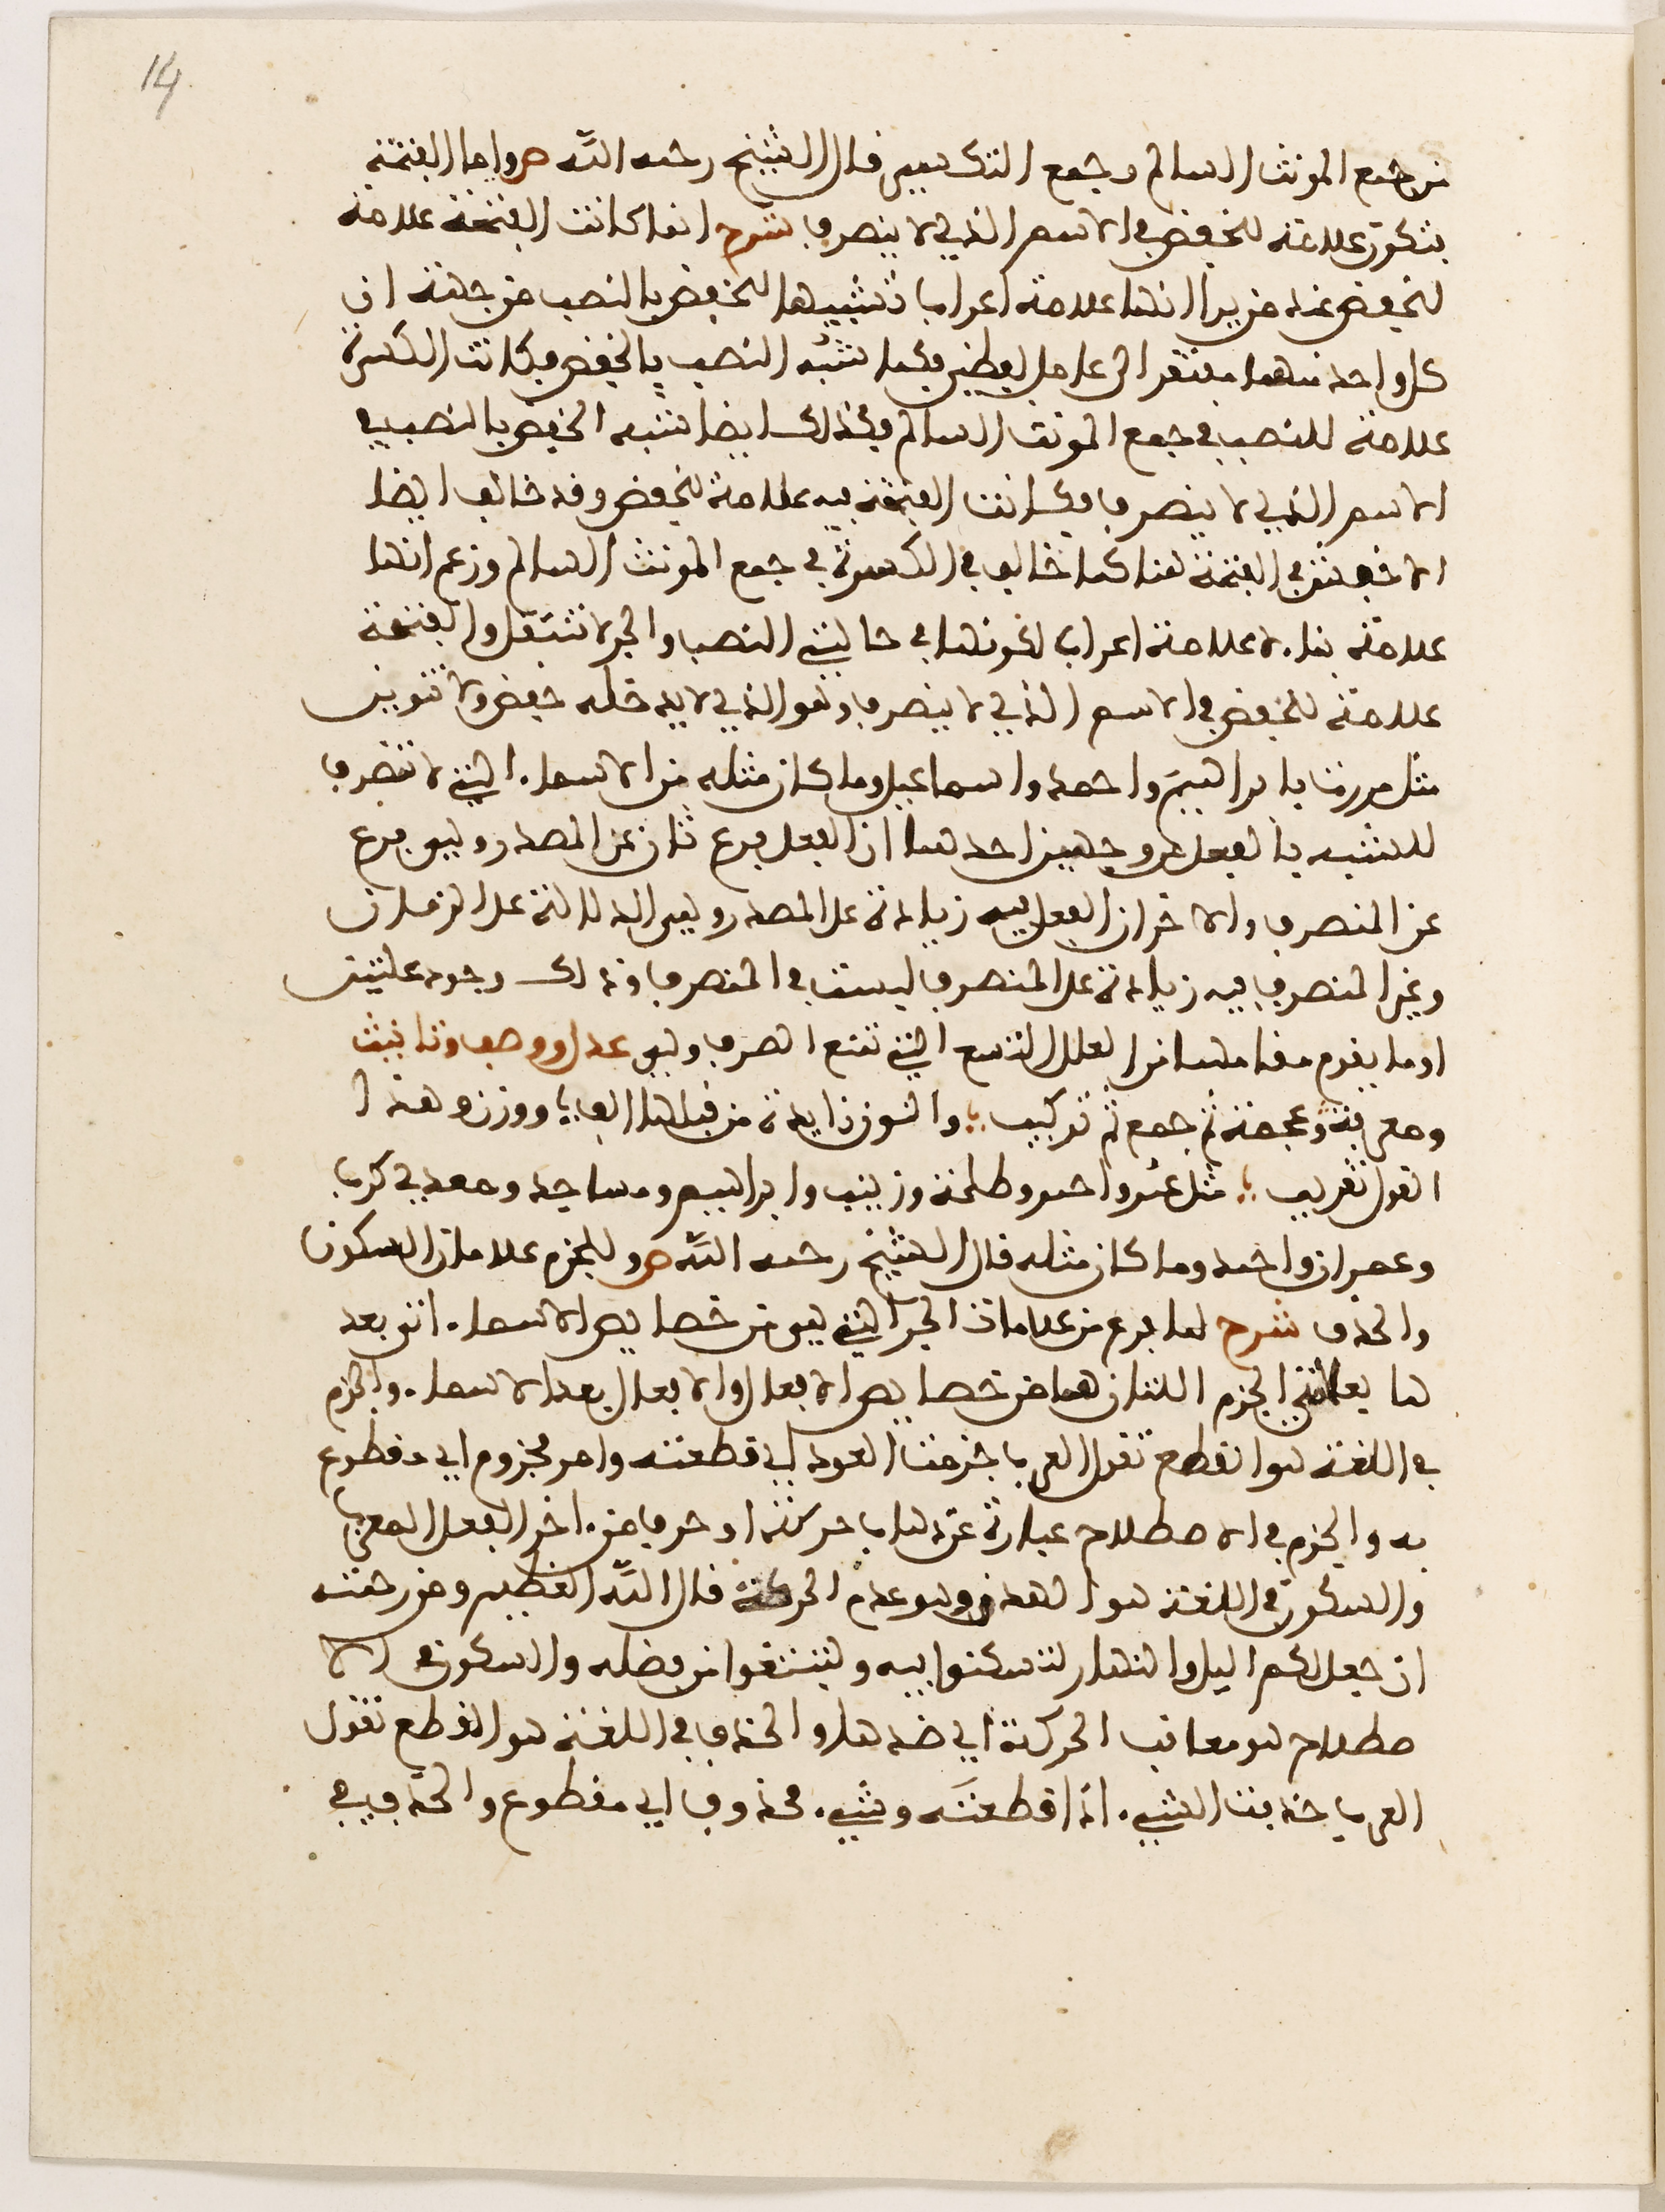 14
من جمع المونث السالم وجمع التكسير قال الشيخ رحمه الله ص واما الفتحة
فتكون علامة للخفض في الاسم الذي لا ينصرف شرح انما كانت الفتحة علامة
للخفض عند من يرا انها علامة اعراب تشبيها للخفض بالنصب من جهة ان
كل واحد منهما يفتقر الى عامل لفظي فكما شبه النصب بالخفض فكانت الكسرة
علامة للنصب في جمع المونث السالم فكذلك ايضا شبه الخفض بالنصب في
الاسم الذي لا ينصرف فكانت الفتحة فيه علامة للخفض وقد خالف ايضا
الاخفش في الفتحة هنا كما خالف في الكسرة في جمع المونث السالم وزعم انها
علامة بناء لا علامة اعراب لكونها في حالتي النصب والجر لا تنتقل والفتحة
علامة للخفض في الاسم الذي لا ينصرف وهو الذي لا يدخله خفض ولا تنوين
مثل مررت بابراهيم واحمد واسماعيل وما كان مثله من الاسماء التي لا تنصرف
للشبه بالفعل من وجهين احدهما ان الفعل فرع ثان عن المصدر وهو فرع
عن المنصرف والاخر ان الفعل فيه زيادة على المصدر وهي الدلالة على الزمان
وغير المنصرف فيه زيادة على المنصرف ليست في المنصرف وذلك وجود علتين
او ما يقوم مقامهما من العلل التسع التي تمنع الصرف وهي عدل ووصف وتانيث
ومعرفة وعجمة ثم جمع ثم تركيب والنون زايدة من قبلها الف ووزن وهذا
القول تقريب مثل عمر واحمر وطلحة وزينب وابراهيم ومساجد ومعدي كرب
وعمران واحمد وما كان مثله قال الشيخ رحمه الله ص وللجزم علامتان السكون
والحذف شرح لما فرغ من علامات الجر التي هي من خصايص الاسماء اتى بعد
ها بعلامتي الجزم اللتان هما من خصايص الافعال والافعال بعد الاسماء والجزم
في اللغة هو القطع تقول العرب جزمت العود اي قطعته وامر مجزوم اي مقطوع
به والجزم في الاصطلاح عبارة عن ذهاب حركة او حرف من اخر الفعل المعرب
والسكون في اللغة هو الهدو وهو عدم الحركة قال الله العظيم ومن رحمته
ان جعل لكم اليل والنهار لتسكنوا فيه ولتبتغوا من فضله والسكون في الا
صطلاح هو معاقب الحركة اي ضدها والحذف في اللغة هو القطع تقول
العرب حذفت الشيء اذا قطعته وشيء محذوف اي مقطوع والحذف في